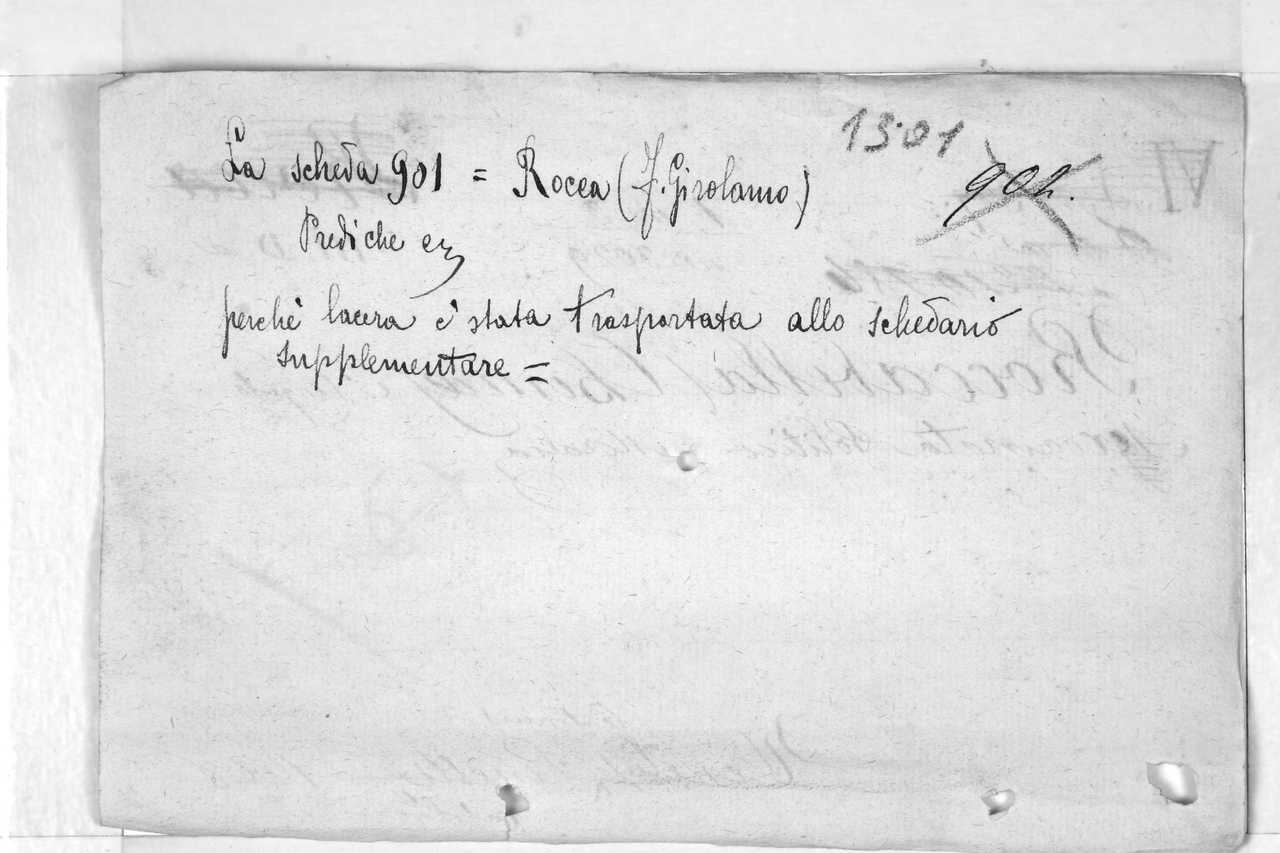 1301
901.
La scheda 901 = Rocca (F. Girolamo)
Prediche
perchè lacera è stata trasportata allo schedario
supplementare =